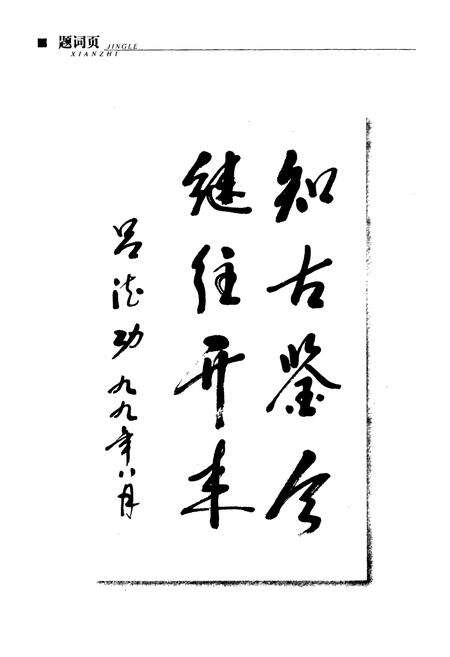 ■ 题词页 JINGLE
XIANZHI
知古鉴今
继往开来
吕德功
九九年八月